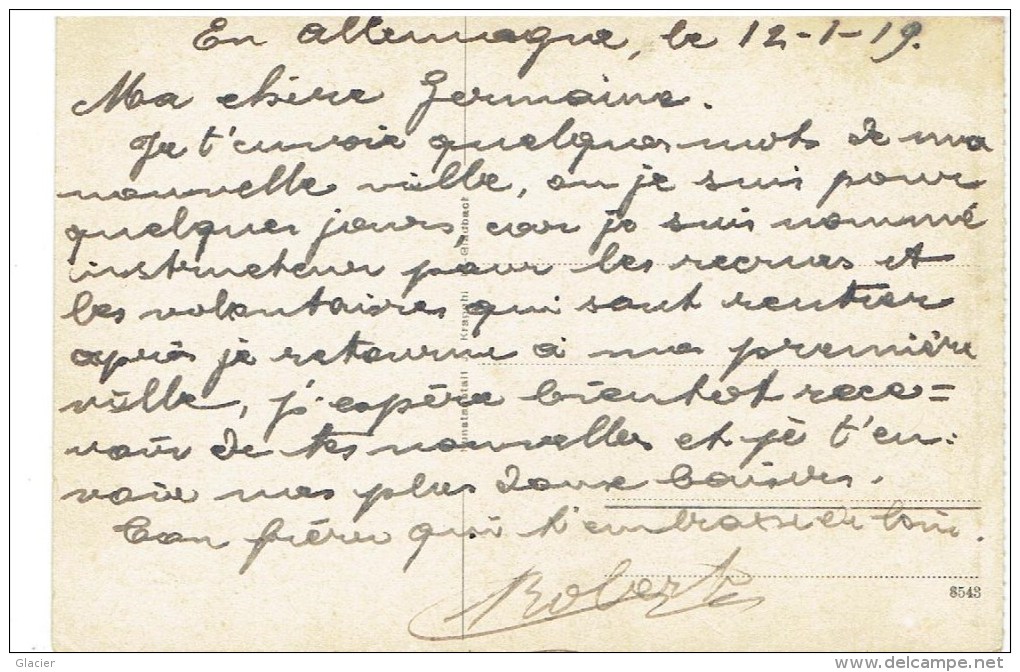 En Allemagne, le 12-1-19.
Ma chère Germaine.
Je t'envoie quelques mots de ma
nouvelle ville, ou je suis pour
quelques jours, car je suis nommé
instructeur pour les recrues et
les volontaires qui sont rentrer
après je retourne à ma première
ville, j'espère bientot rece=
voir de tes nouvelles et je t'en:
voie mes plus doux baisers.
Ton frère qui t'embrasse de loin.
Robert
Gladbach
8543
Glacier
www.delcampe.net